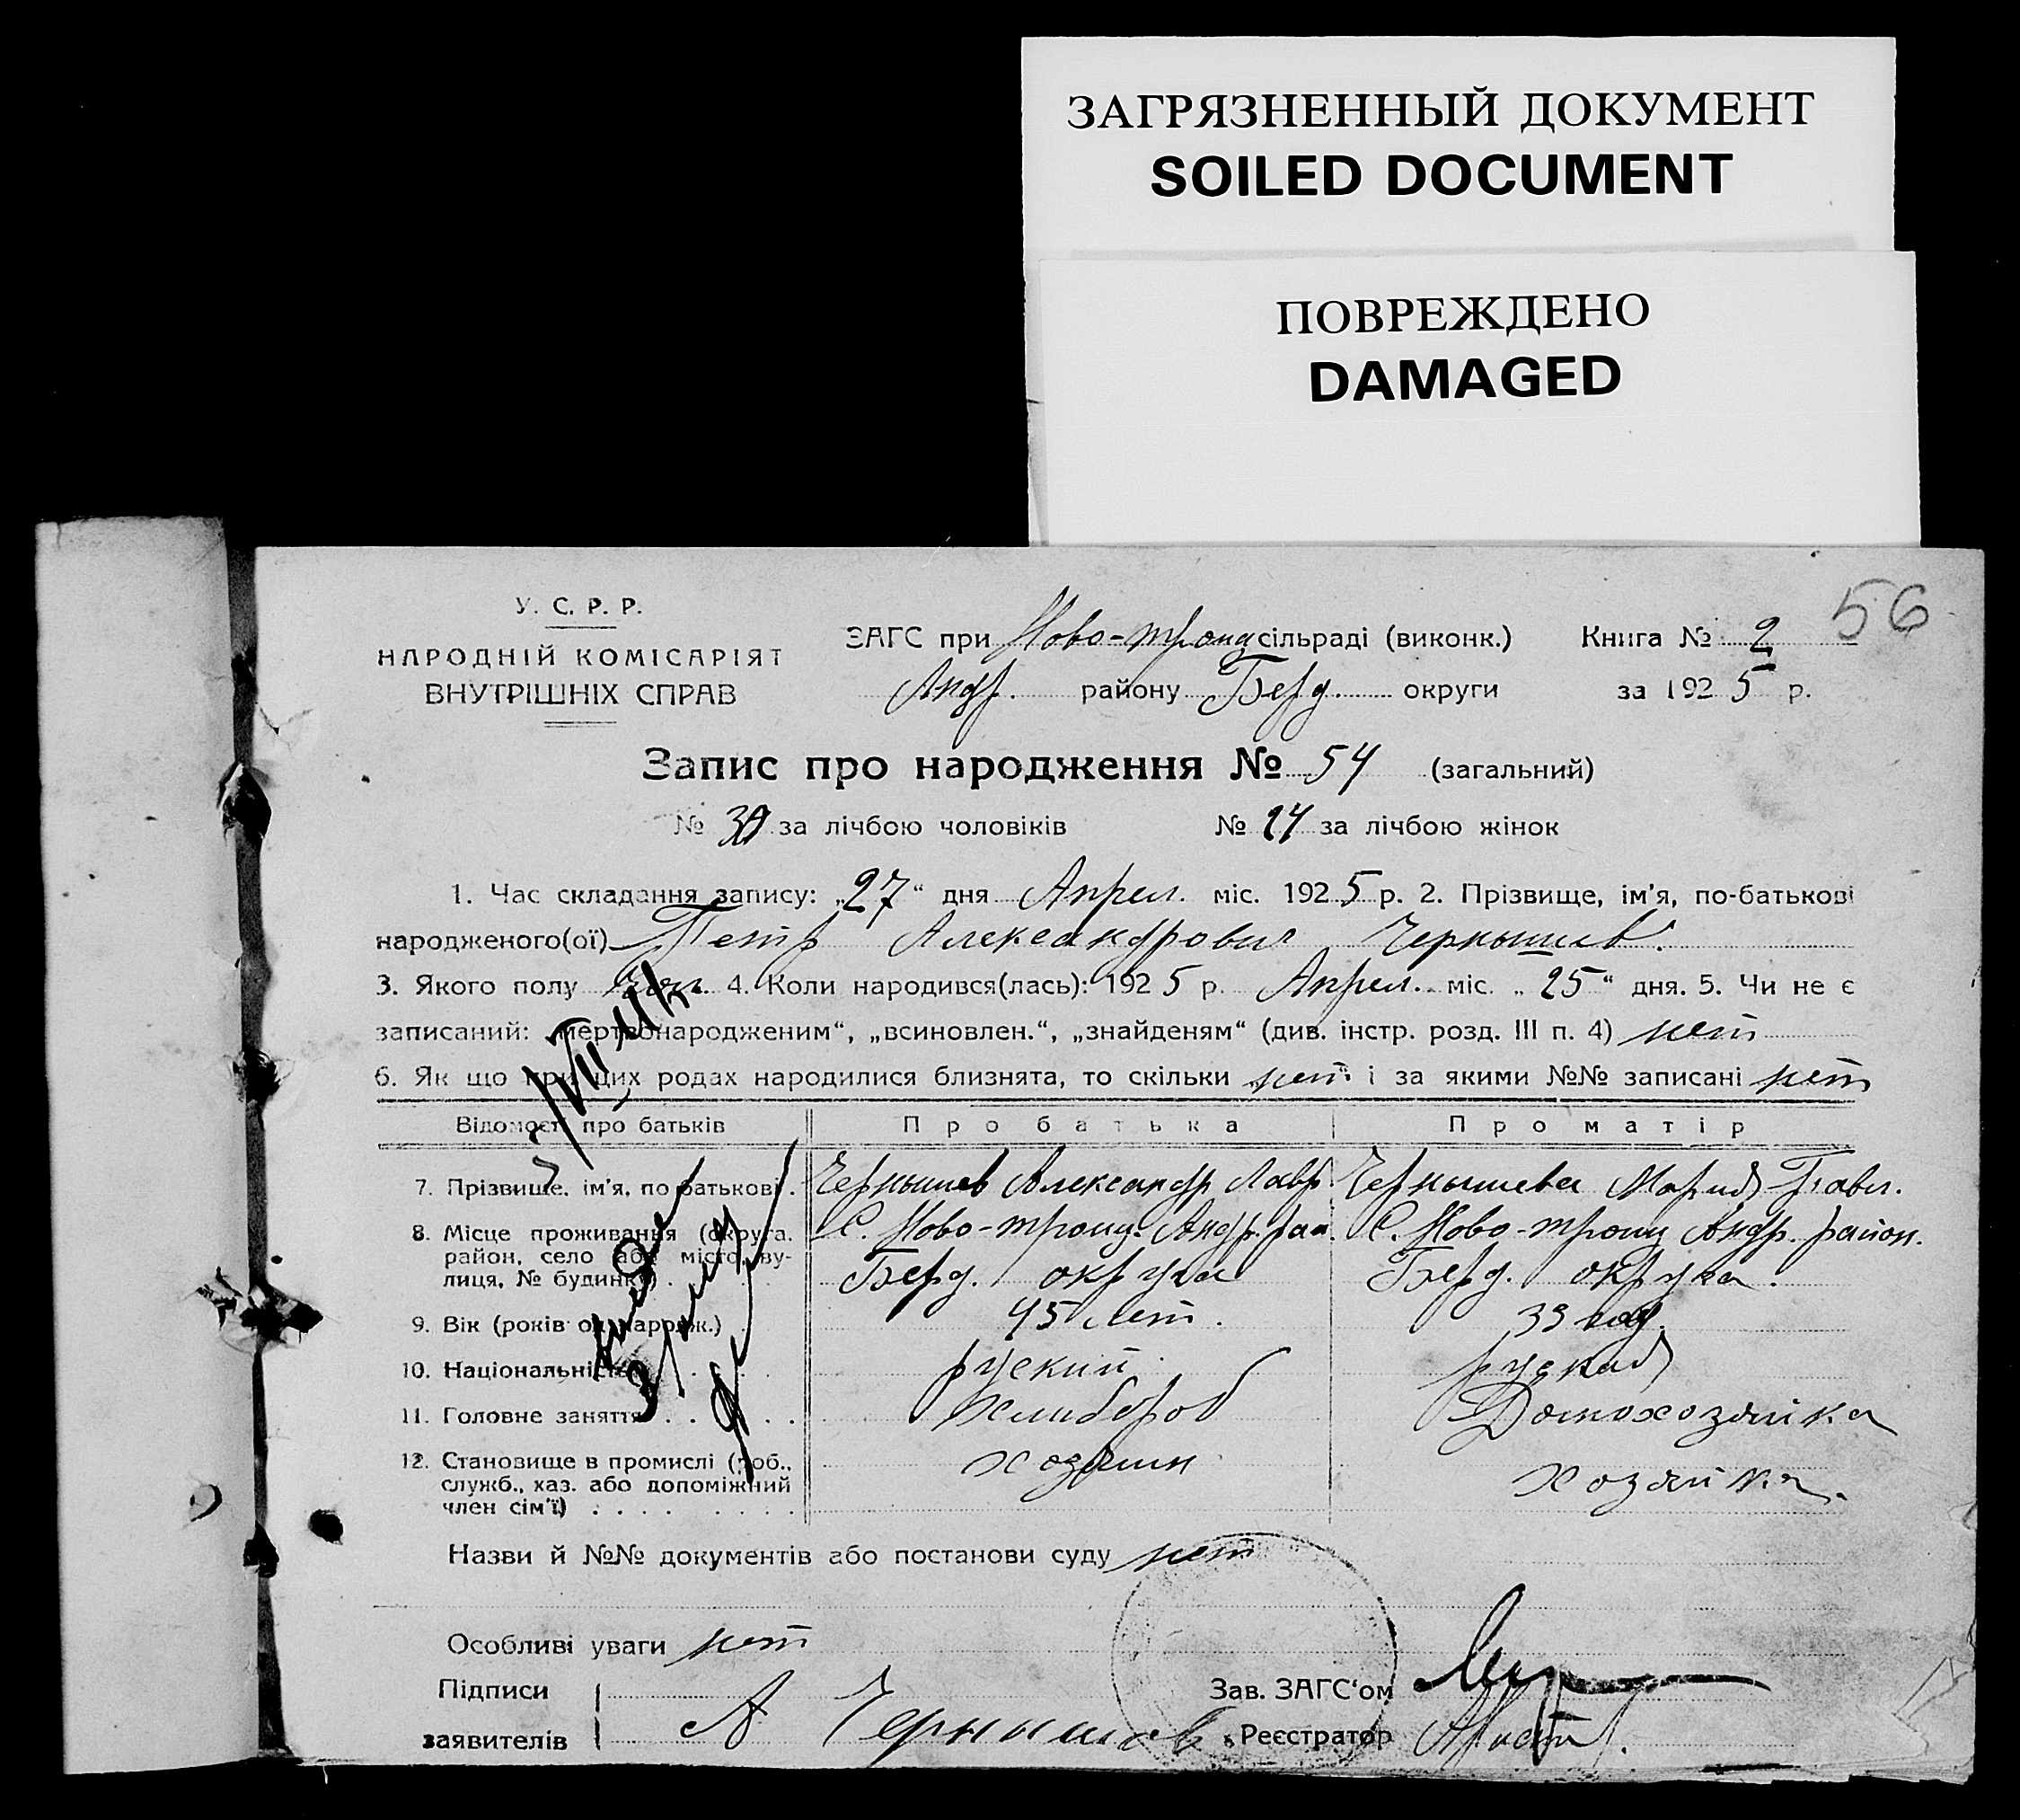 ЗАГРЯЗНЕННЫЙ ДОКУМЕНТ
SOILED DOCUMENT
ПОВРЕЖДЕНО
DAMAGED
56
У. С. Р. Р.
НАРОДНІЙ КОМІСАРІЯТ
ВНУТРІШНІХ СПРАВ
ЗАГС при Ново-троиц сільраді (виконк.) Книга № 2
Андр. району Берд. округи за 1925 р.
Запис про народження № 54 (загальний)
№ 30 за лічбою чоловіків № 24 за лічбою жінок
1. Час складання запису: „27“ дня Апрел. міс. 1925 р. 2. Прізвище, ім'я, по-батькові
народженого(ої) Петр Александрович Чернышев.
3. Якого полу 4. Коли народився(лась): 1925 р. Апрел. міс. „25“ дня. 5. Чи не є
записаний: „мертвонародженим“, „всиновлен.“, „знайденям“ (див. інстр. розд. III п. 4) нет
6. Як що при цих родах народилися близнята, то скільки нет і за якими №№ записані нет
Відомості про батьків Про батька Про матір
7. Прізвище, ім'я, по батькові . Чернышев Александр Лавр Чернышева Мария Павл.
8. Місце проживання (округа, С. Ново-троиц. Андр. рай. С. Ново-троиц Андр. район.
район, село або місто, ву-
лиця, № будинку) . Берд. округа Берд. округа.
9. Вік (років од народж.) 45 лет. 33 год.
10. Національність руский руская
11. Головне заняття . . . . Хлибороб Домохозяйка
12. Становище в промислі (роб., хозяин хозяйка.
служб., хаз. або допоміжний
член сім'ї) . . . . . . . .
Назви й №№ документів або постанови суду нет
Особливі уваги нет
Підписи
заявителів А Чернишов
Зав. ЗАГС'ом
Реєстратор